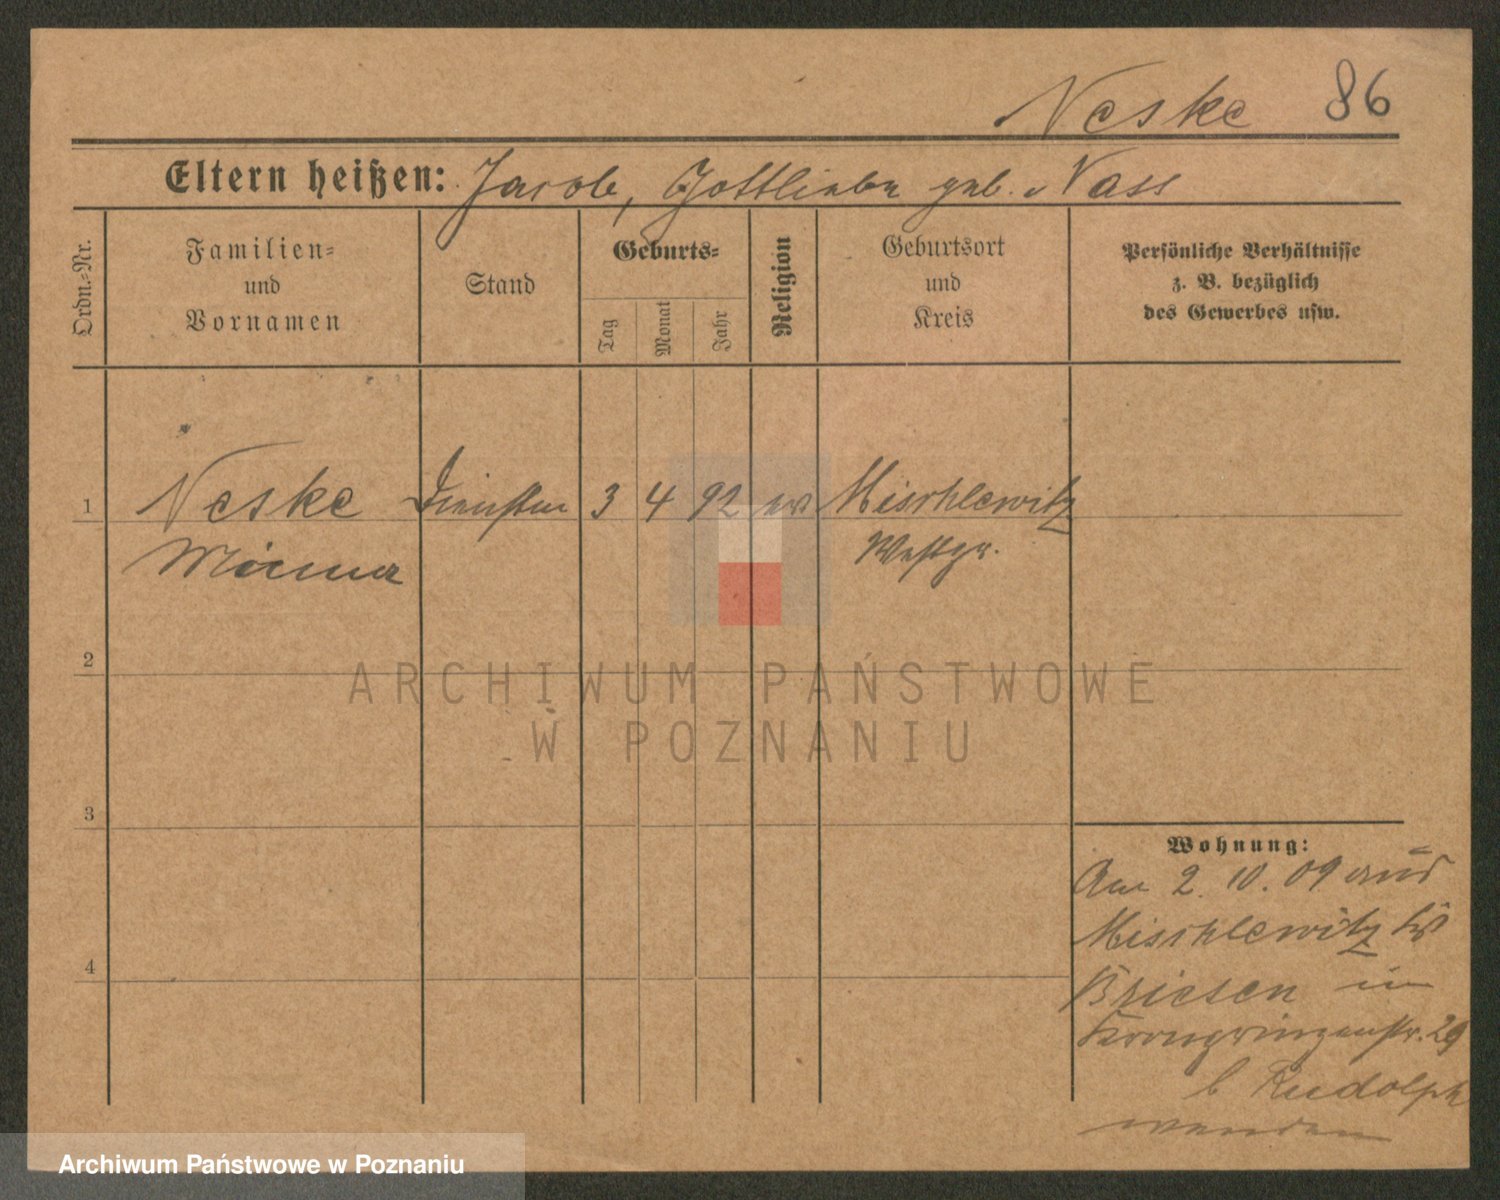 Neske 86
Eltern heißen: Jacob, Gottliebe geb. Nass
Ordn.-Nr.
Familien-
und
Vornamen
Stand
Geburts-
Tag
Monat
Jahr
Religion
Geburtsort
und
Kreis
Persönliche Verhältnisse
z. B. bezüglich
des Gewerbes usw.
1 Neske 3 4 92 ev Mischlewitz
Minna Westpr.
2
3
4
Wohnung:
Am 2. 10. 09 aus
Mischlewitz Krs
Briesen in
Kronprinzenstr. 29
b Rudolph
wenden
ARCHIWUM PAŃSTWOWE
W POZNANIU
Archiwum Państwowe w Poznaniu